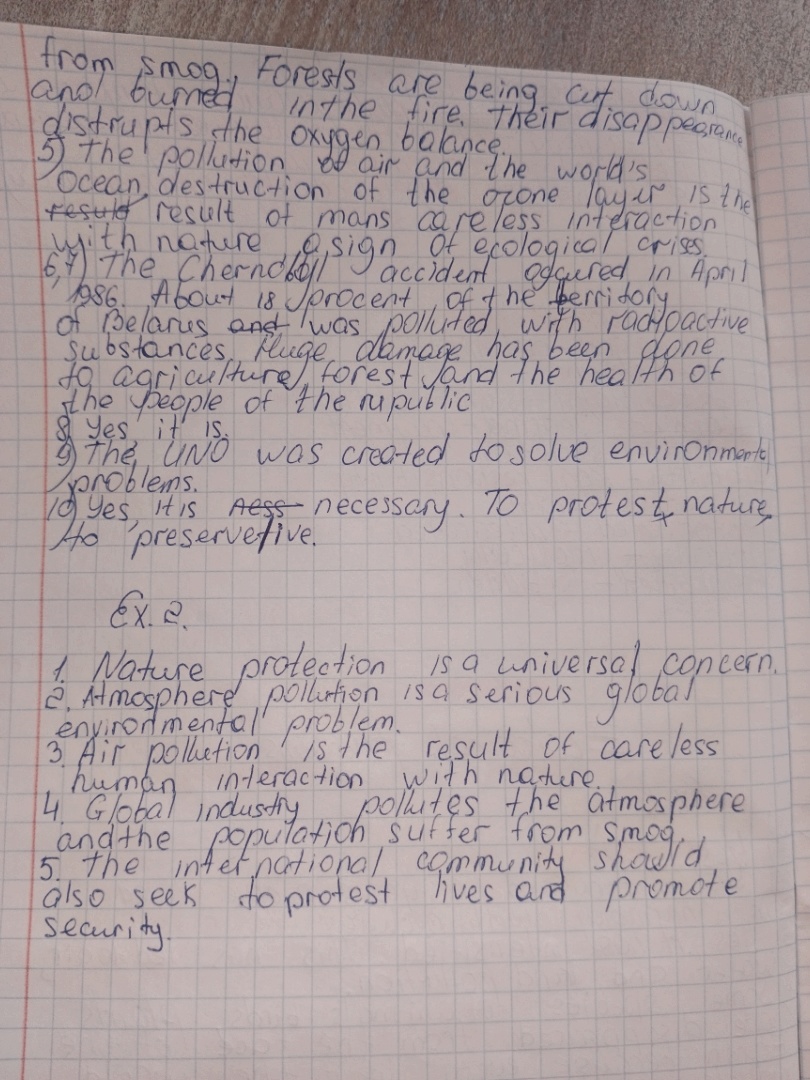 from smog. Forests are being cut down
and burned in the fire. Their disappearance
distrupts the oxygen balance.
5) The pollution of air and the world's
Ocean, destruction of the ozone layer is the
result result of mans careless interaction
with nature, a sign of ecological crises
6,7) The Chernobyll accident oggured in April
1986. About 18 procent of the territory
of Belarus and was polluted with radyoactive
substances. Huge damage has been done
to agriculture, forest and the health of
the people of the rupublic
8) Yes, it is.
9) The UNO was created to solve environmental
problems.
10) Yes, it is necessary. To protest nature,
to preserve live.
Ex. 2.
1. Nature protection is a universal concern.
2. Atmosphere pollution is a serious global
environmental problem.
3. Air pollution is the result of careless
human interaction with nature.
4. Global industry pollutes the atmosphere
and the population suffer from smog.
5. The international community should
also seek to protest lives and promote
security.